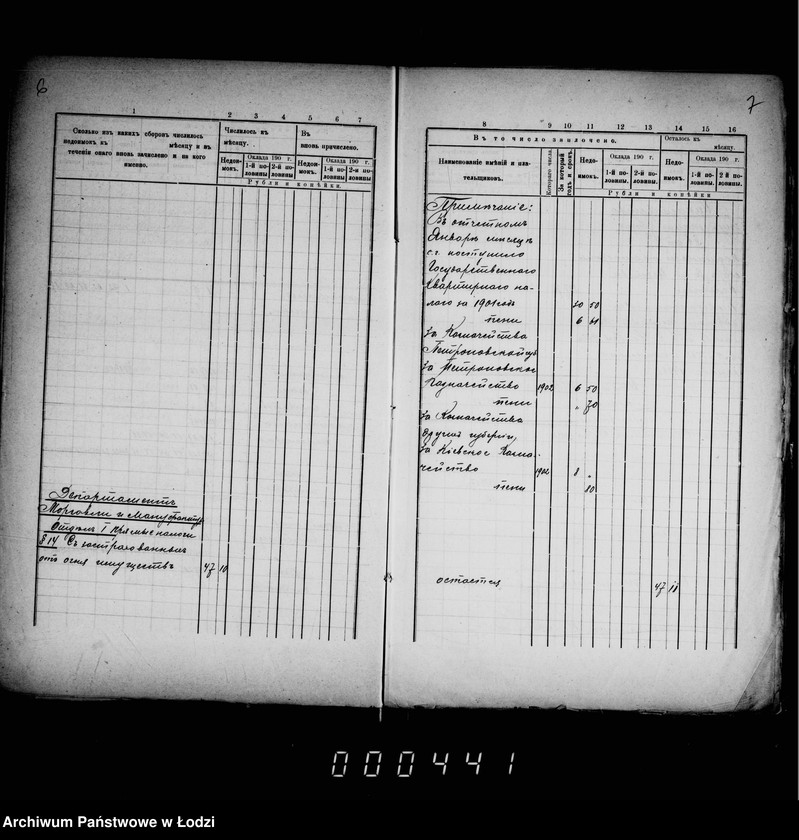 6
1 2 3 4 5 6 7
Сколько изъ какихъ сборовъ числилось
недоимокъ къ мѣсяцу и въ
теченіи онаго вновь зачислено и на кого
именно.
Числилось къ
мѣсяцу.
Въ
вновь причислено.
Недои-
мокъ.
Оклада 190 г.
1-й по-
ловины
2-й по-
ловины
Недои-
мокъ.
Оклада 190 г.
1-й по-
ловины
2-й по-
ловины
Рубли и копѣйки.
Департаментъ
Торговли и Мануфактур
Отдѣлъ I прямые налоги
§ 14 Съ застрахованныхъ
отъ огня имуществъ 47 10
7
8 9 10 11 12 13 14 15 16
Въ то число уплочено.
Осталось къ
мѣсяцу.
Наименованіе имѣній и пла-
тельщиковъ.
Котораго числа
За который
годъ и срокъ.
Недо-
имокъ.
Оклада 190 г.
1-й по-
ловины.
2-й по-
ловины.
Недо-
имокъ.
Оклада 190 г.
1-й по-
ловины
2 й по-
ловины
Рубли и копѣйки
Примѣчаніе:
Въ отчетномъ
Январѣ мѣсяцѣ
с.г. поступило
Государственнаго
Квартирнаго на-
лога за 1901 годъ 30 50
пени 6 61
За Казначейства
Петроковской губ
За Петроковское
Казначейство 1902 6 50
пени „ 70
За Казначейства
другихъ губерній,
За Кіевское Казна-
чейство 1902 8 „
пени 80
остается 47 11
000441
Archiwum Państwowe w Łodzi